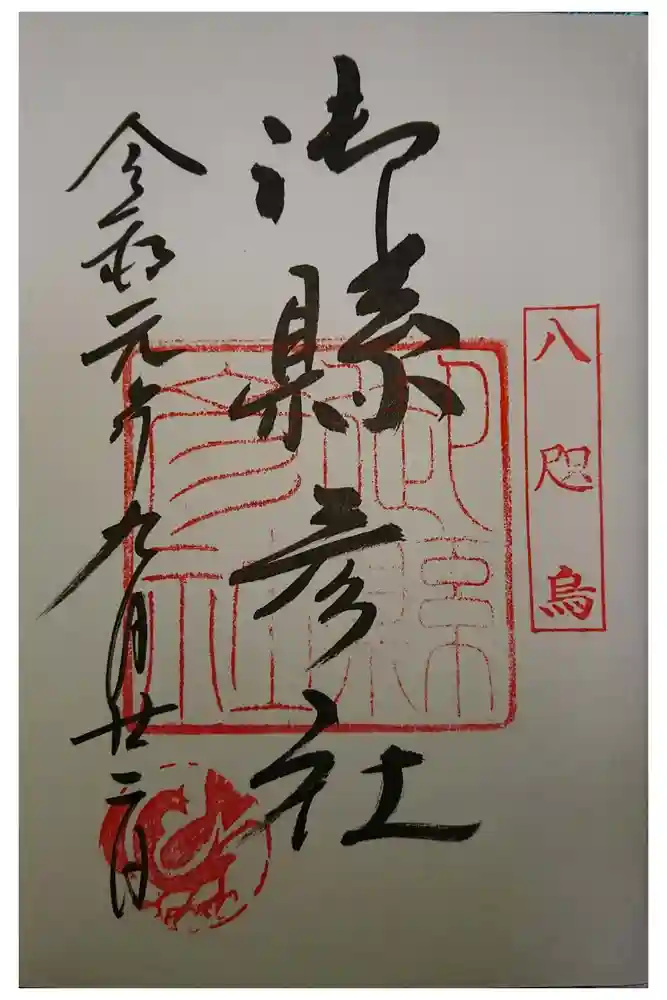 八咫烏
御縣彦社
令和元年九月廿二日